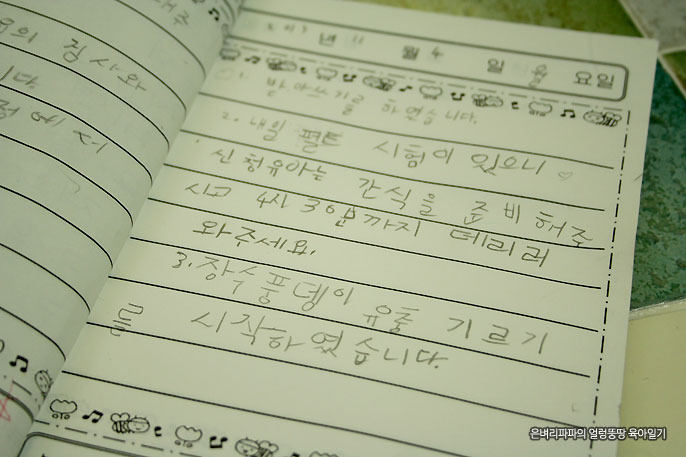 의 검사와
니다.
2013 년 11 월 4 일 월 요일
1. 받아쓰기를 하였습니다.
2. 내일 펠트 시험이 있으니 ♡
신청유아는 간식을 준비해주
시고 4시 30분까지 데리러
와주세요.
3. 장수풍뎅이 유충 기르기
를 시작하였습니다.
은벼리파파의 얼렁뚱땅 육아일기